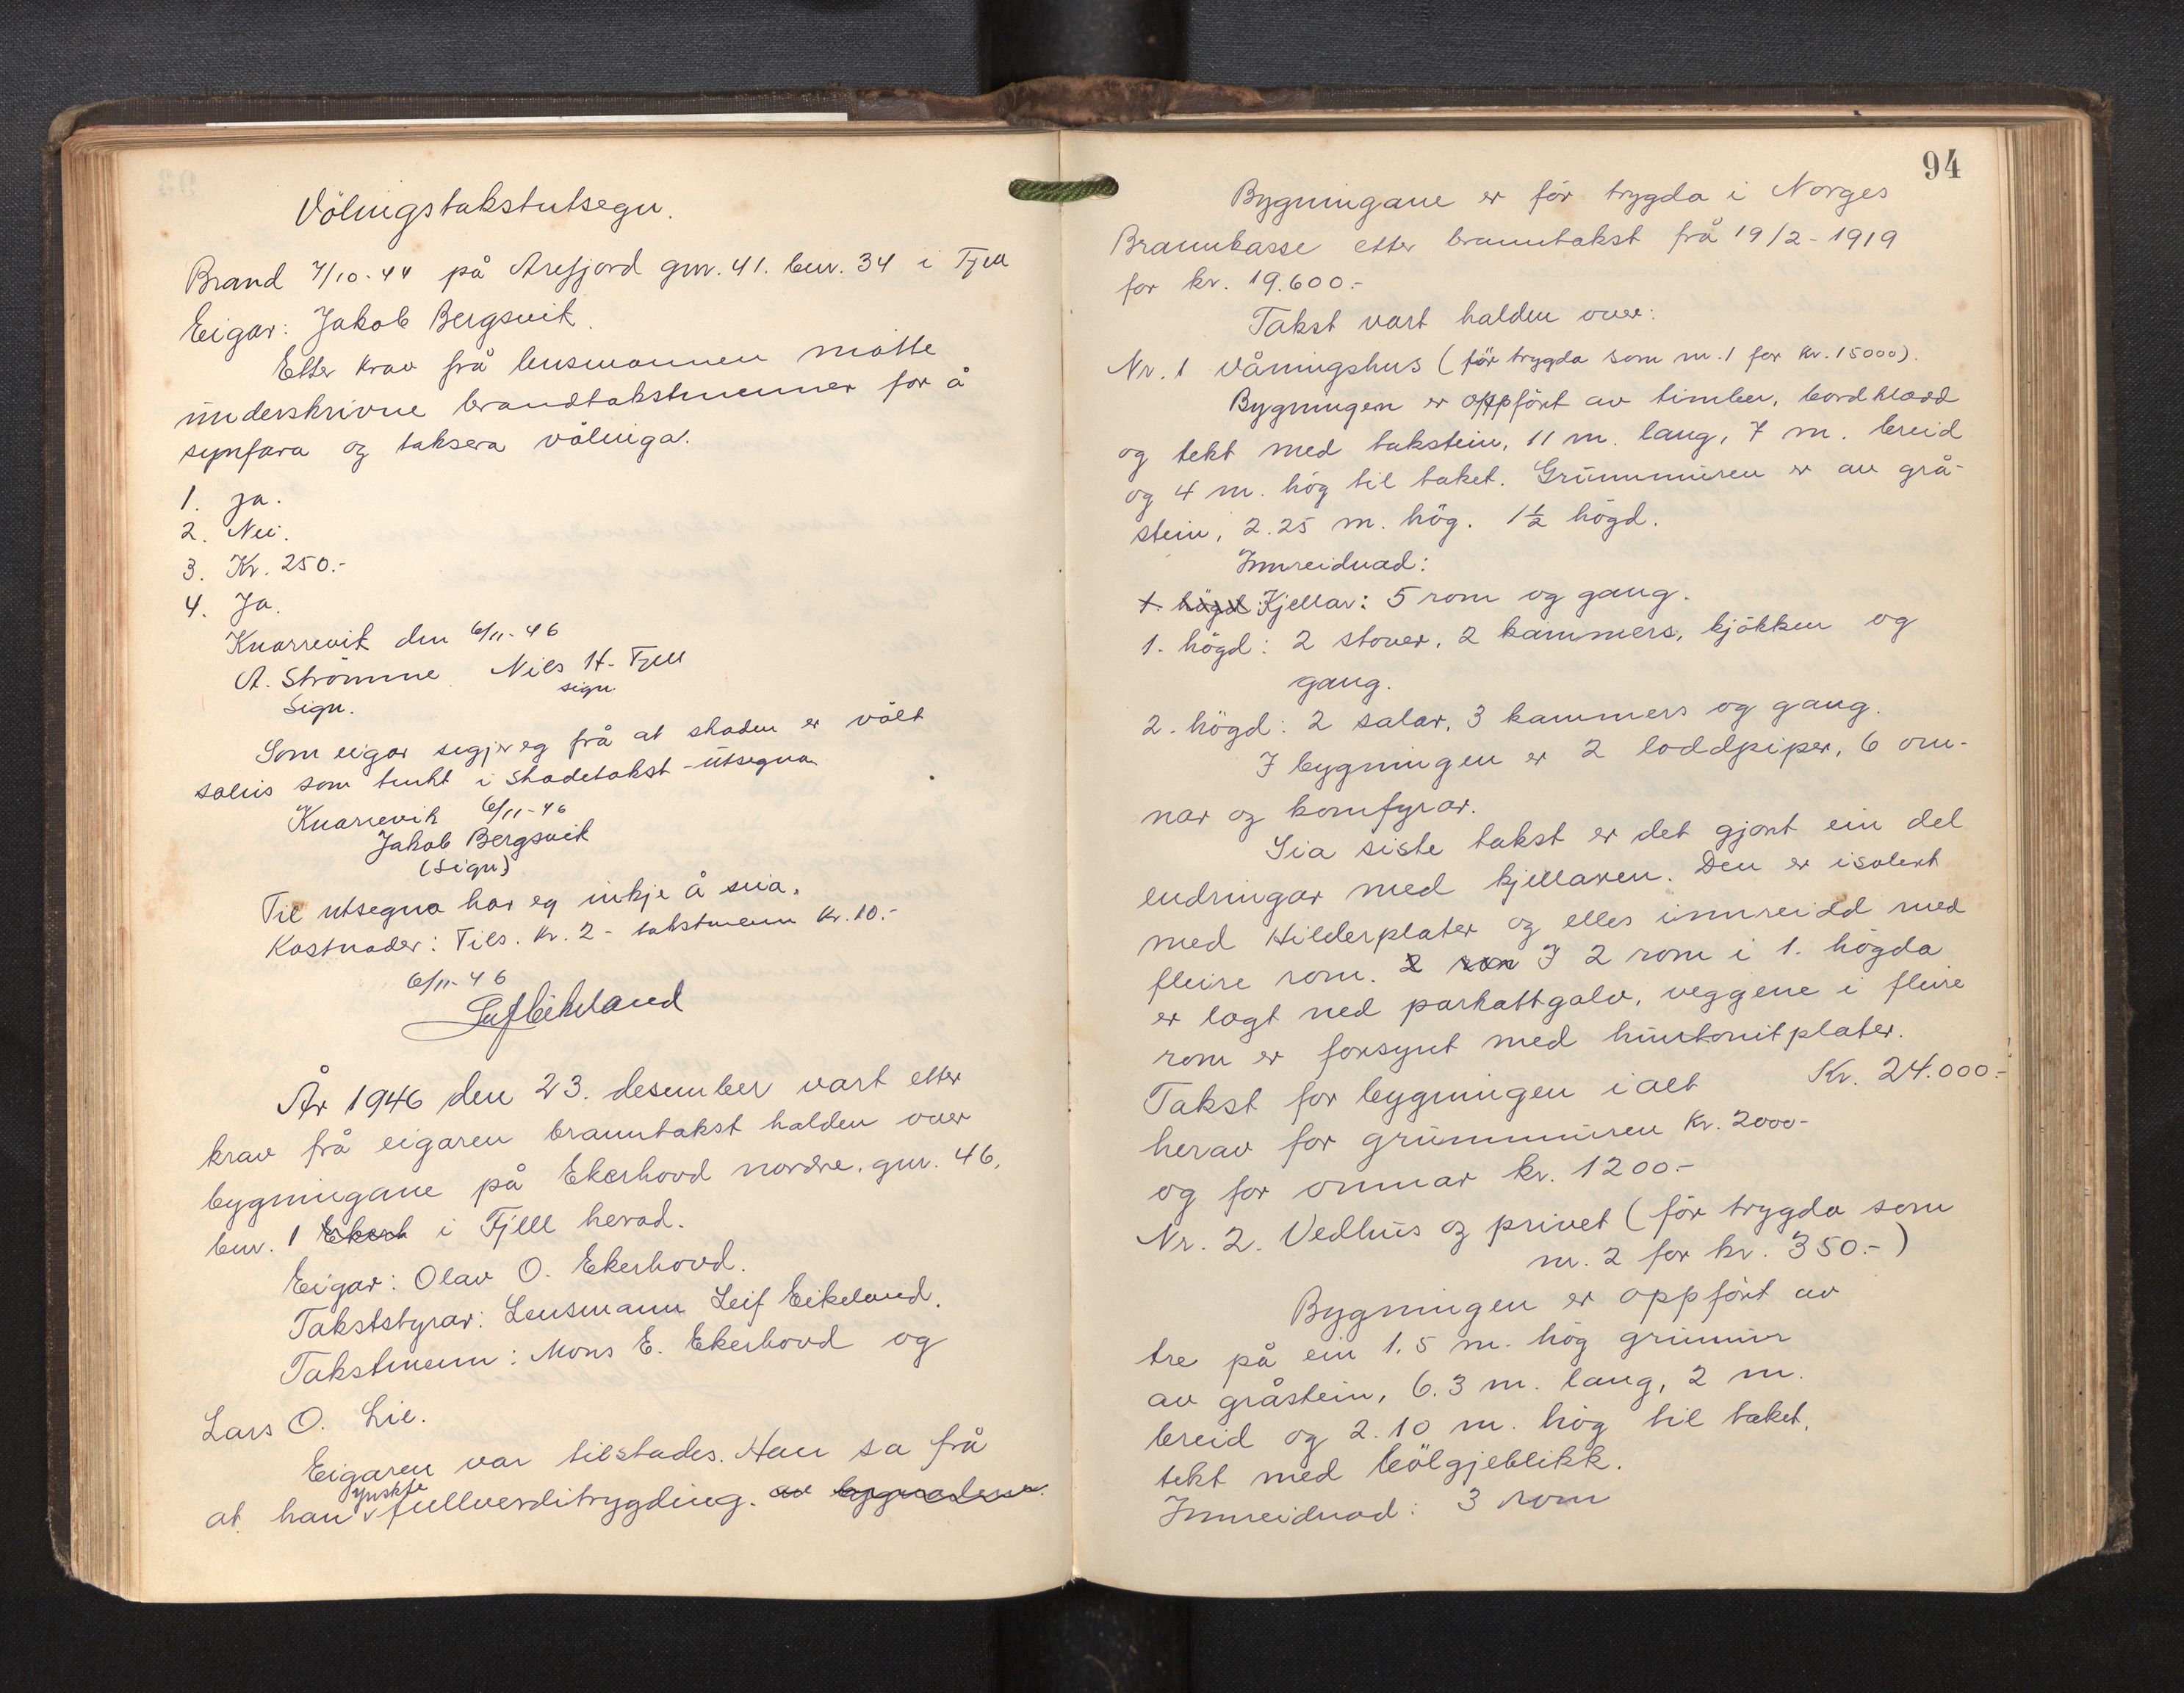 Völingstakstutsegn.
Brand 7/10-44 på Arefjord gnr. 41. bnr. 34 i Fjell
Eigar: Jakob Bergsvik.
Etter krav frå lensmannen møtte
underskrivne brandtakstmenner for å
synfara og taksera völinga.
1. Ja.
2. Nei.
3. Kr. 250.-
4. Ja.
Knarrevik den 6/11-46
A. Strömme Nils H. Fjell
sign.
Sign.
Som eigar segjer eg frå at skaden er völt
soleis som tenkt i skadetakst-utsegna
Knarrevik 6/11-46
Jakob Bergsvik
(Sign)
Til utsegna har eg inkje å seia.
Kostnader: Tils. kr. 2- takstmenn kr. 10.-
6/11-46
Leif Eikeland
År 1946 den 23. desember vart etter
krav frå eigaren branntakst halden over
bygningane på Ekerhovd nordre, gnr. 46,
bnr. 1 Ekerh i Fjell herad.
Eigar: Olav O. Ekerhovd.
Takststyrar: Lensmann Leif Eikeland.
Takstmenn: Mons E. Ekerhovd og
Lars O. Lie.
Eigaren var tilstades. Han sa frå
ynskte
at han fullverditrygding. av
94
Bygningane er för trygda i Norges
Brannkasse etter branntakst frå 19/2-1919
for kr. 19.600.-
Takst vart halden over:
Nr. 1 Våningshus (för trygda som nr. 1 for kr. 15000).
Bygningen er oppfört av timber, bordkledd
og tekt med takstein, 11 m. lang, 7 m. breid
og 4 m. hög til taket. Grunnmuren er av grå-
stein, 2.25 m. hög. 1½ högd.
Innreidnad:
1. högd Kjellar: 5 rom og gang.
1. högd: 2 stover, 2 kammers, kjökken og
gang.
2. högd: 2 salar, 3 kammers og gang.
I bygningen er 2 loddpiper, 6 om-
nar og komfyrar.
Sia siste takst er det gjort ein del
endringar med kjellaren. Den er isolert
med Hilderplater og elles innreidd med
fleire rom. 2 rom I 2 rom i 1. högda
er lagt ned parkattgolv, veggene i fleire
rom er forsynt med huntonitplater.
Takst for bygningen ialt Kr. 24.000.-
herav for grunnmuren kr. 2000-
og for omnar kr. 1200.-
Nr. 2. Vedhus og privet (för trygda som
nr. 2 for kr. 350.-)
Bygningen er oppfört av
tre på ein 1.5 m. hög grunmur
av gråstein, 6.3 m. lang, 2 m.
breid og 2.10 m. hög til taket,
tekt med bölgjeblikk.
Innreidnad: 3 rom